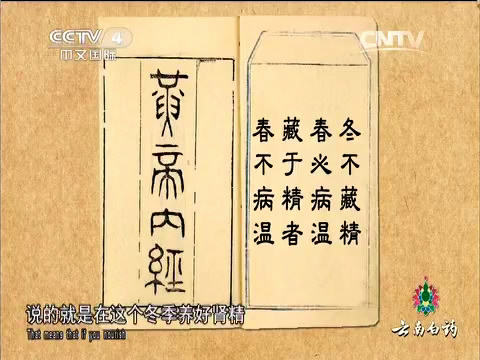 CCTV 4
中文国际
CNTV
黄帝内經
冬不藏精
春必病温
藏于精者
春不病温
说的就是在这个冬季养好肾精
That means that if you nourish
云南白药